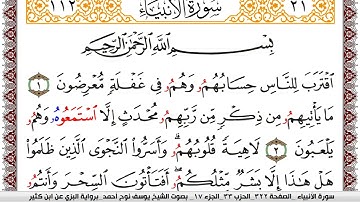 ١١٢ سورة الأنبياء ٢١
بِسْمِ اللَّهِ الرَّحْمَٰنِ الرَّحِيمِ
اقْتَرَبَ لِلنَّاسِ حِسَابُهُمُ وَهُمُ فِي غَفْلَةٍ مُّعْرِضُونَ ١
مَا يَأْتِيهِمُ مِن ذِكْرٍ مِّن رَّبِّهِمُ مُحْدَثٍ إِلَّا اسْتَمَعُوهُ وَهُمُ
يَلْعَبُونَ ٢ لَاهِيَةً قُلُوبُهُمُ وَأَسَرُّوا النَّجْوَى الَّذِينَ ظَلَمُوا
هَلْ هَٰذَا إِلَّا بَشَرٌ مِّثْلُكُمُ أَفَتَأْتُونَ السِّحْرَ وَأَنتُمُ
سورة الأنبياء _ الصفحة ٣٢٢ _ الحزب ٣٣ _ الجزء ١٧ _ بصوت الشيخ يوسف نوح احمد _ برواية البزي عن ابن كثير